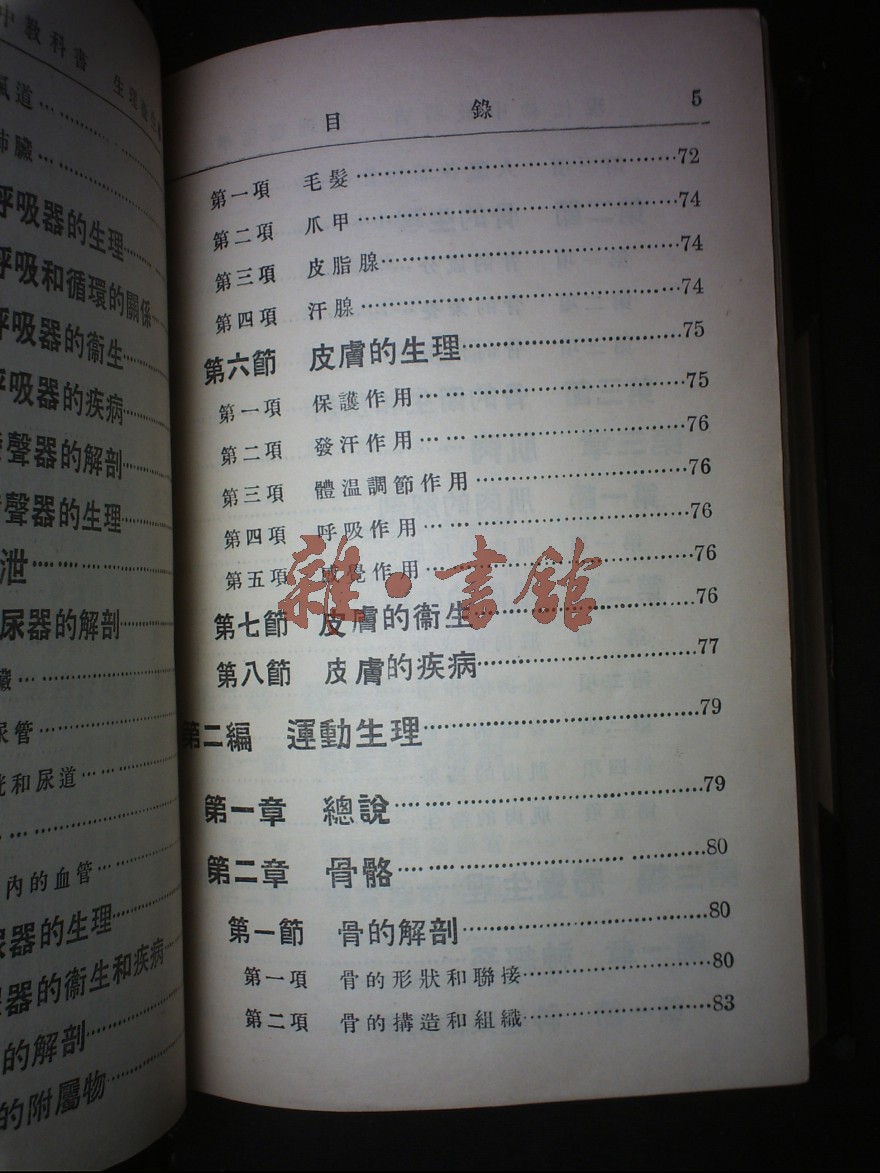 中教科書 生理衞生
氣道
肺臟
呼吸器的生理
呼吸和循環的關係
呼吸器的衞生
呼吸器的疾病
發聲器的解剖
發聲器的生理
泄
尿器的解剖
臟
尿管
胱和尿道
內的血管
尿器的生理
器的衞生和疾病
的解剖
的附屬物
目 錄 5
第一項 毛髮 72
第二項 爪甲 74
第三項 皮脂腺 74
第四項 汗腺 74
第六節 皮膚的生理 75
第一項 保護作用 75
第二項 發汗作用 76
第三項 體温調節作用 76
第四項 呼吸作用 76
第五項 感覺作用 76
雜·書館
第七節 皮膚的衞生 76
第八節 皮膚的疾病 77
第二編 運動生理 79
第一章 總說 79
第二章 骨骼 80
第一節 骨的解剖 80
第一項 骨的形狀和聯接 80
第二項 骨的搆造和組織 83